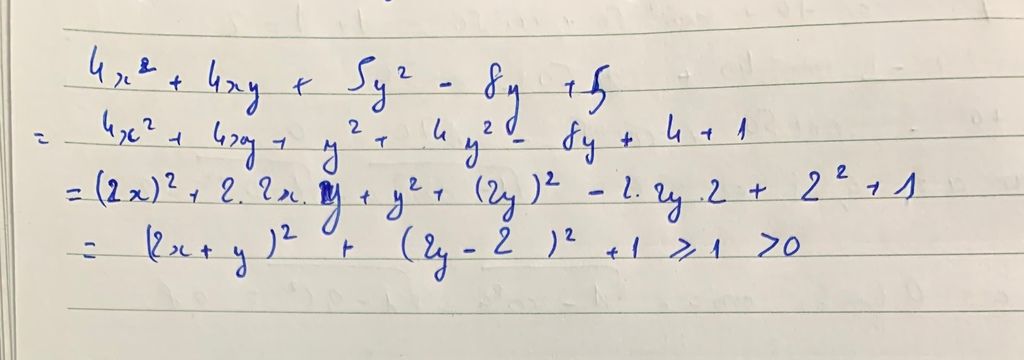 4x² + 4xy + 5y² - 8y + 5
= 4x² + 4xy + y² + 4y² - 8y + 4 + 1
= (2x)² + 2.2x.y + y² + (2y)² - 2.2y.2 + 2² + 1
= (2x + y)² + (2y - 2)² + 1 ⩾ 1 > 0